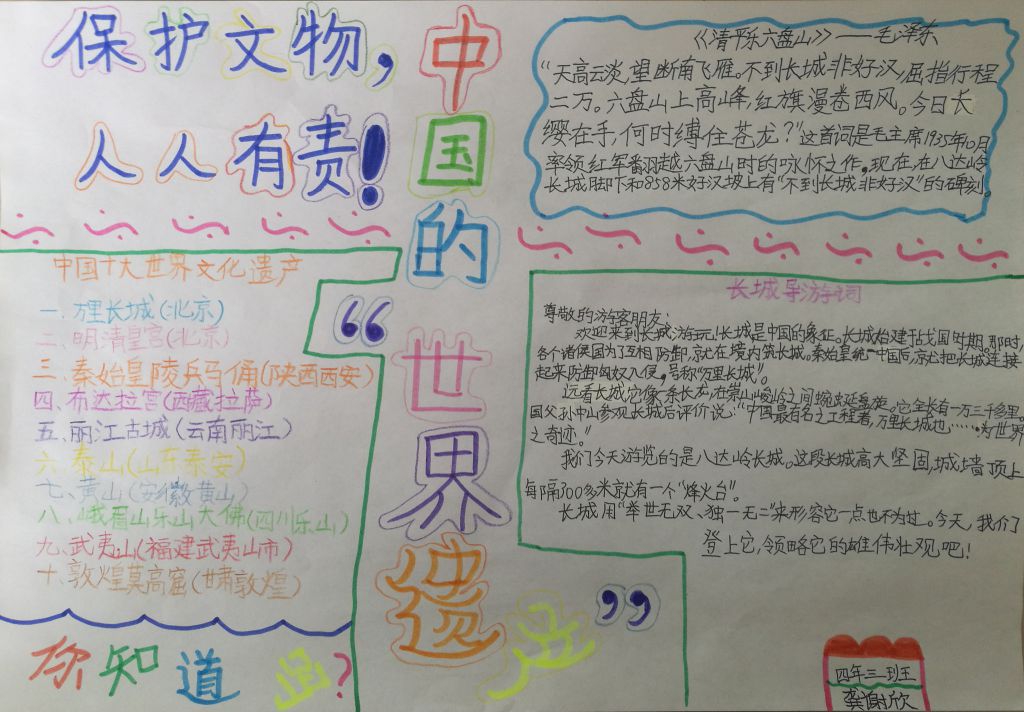 保护文物,
人人有责!
中国的
“世界遗产”
《清平乐六盘山》——毛泽东
“天高云淡,望断南飞雁。不到长城非好汉,屈指行程
二万。六盘山上高峰,红旗漫卷西风。今日长
缨在手,何时缚住苍龙?”这首词是毛主席1935年10月
率领红军翻越六盘山时的咏怀之作。现在,在八达岭
长城脚下和858米好汉坡上有“不到长城非好汉”的碑刻。
中国十大世界文化遗产
一、 长城(北京)
二、明清皇宫(北京)
三、秦始皇陵兵马俑(陕西西安)
四、布达拉宫(西藏拉萨)
五、丽江古城(云南丽江)
六、泰山(山东泰安)
七、黄山(安徽黄山)
八、峨眉山乐山大佛(四川乐山)
九、武夷山(福建武夷山市)
十、敦煌莫高窟(甘肃敦煌)
你知道 ?
长城导游词
尊敬的游客朋友:
欢迎来到长城游玩!长城是中国的象征。长城始建于战国时期,那时,
各个诸侯国为了互相防御,就在境内筑长城。秦始皇统一中国后,就把长城连接
起来防御匈奴入侵,号称“万里长城”。
远看长城,它像一条长龙,在崇山峻岭之间蜿蜒盘旋。它全长有一万三千多里。
国父孙中山参观长城后评价说:“中国最有名之工程者,万里长城也……为世界
之奇迹。”
我们今天游览的是八达岭长城。这段长城高大坚固,城墙顶上
每隔300多米就有一个“烽火台”。
长城用“举世无双、独一无二”来形容它一点也不为过。今天,我们
登上它,领略它的雄伟壮观吧!
四年三班
龚谢欣